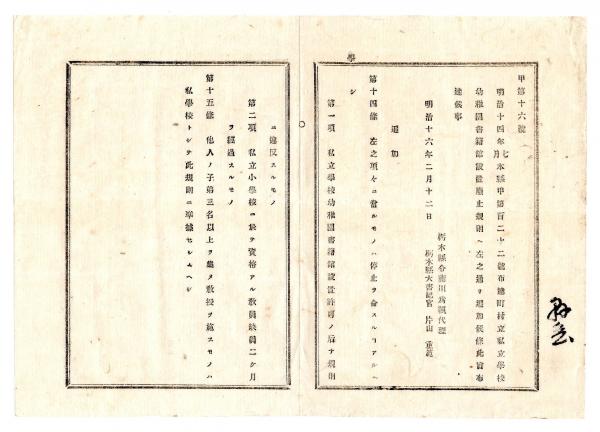 甲第十六號
明治十四年七月本縣甲第百二十二號布達町村立私立學校
幼稚園書籍館設置廢止規則ヘ左之通リ追加候條此旨布
達候事
明治十六年二月十二日
栃木縣令藤川爲親代理
栃木縣大書記官 片山重範
追加
第十四條 左之項々ニ當ルモノハ停止ヲ命スルコアルヘ
シ
第一項 私立學校幼稚園書籍館設置許可ノ后ナ規則
學
ニ違反スルモノ
第二項 私立小學校ニ於テ資格アル敎員缺員二ケ月
ヲ經過スルモノ
第十五條 他人ノ子弟三名以上ヲ集メ敎授ヲ施スモノハ
私學校トシテ此規則ニ準據セシムヘシ